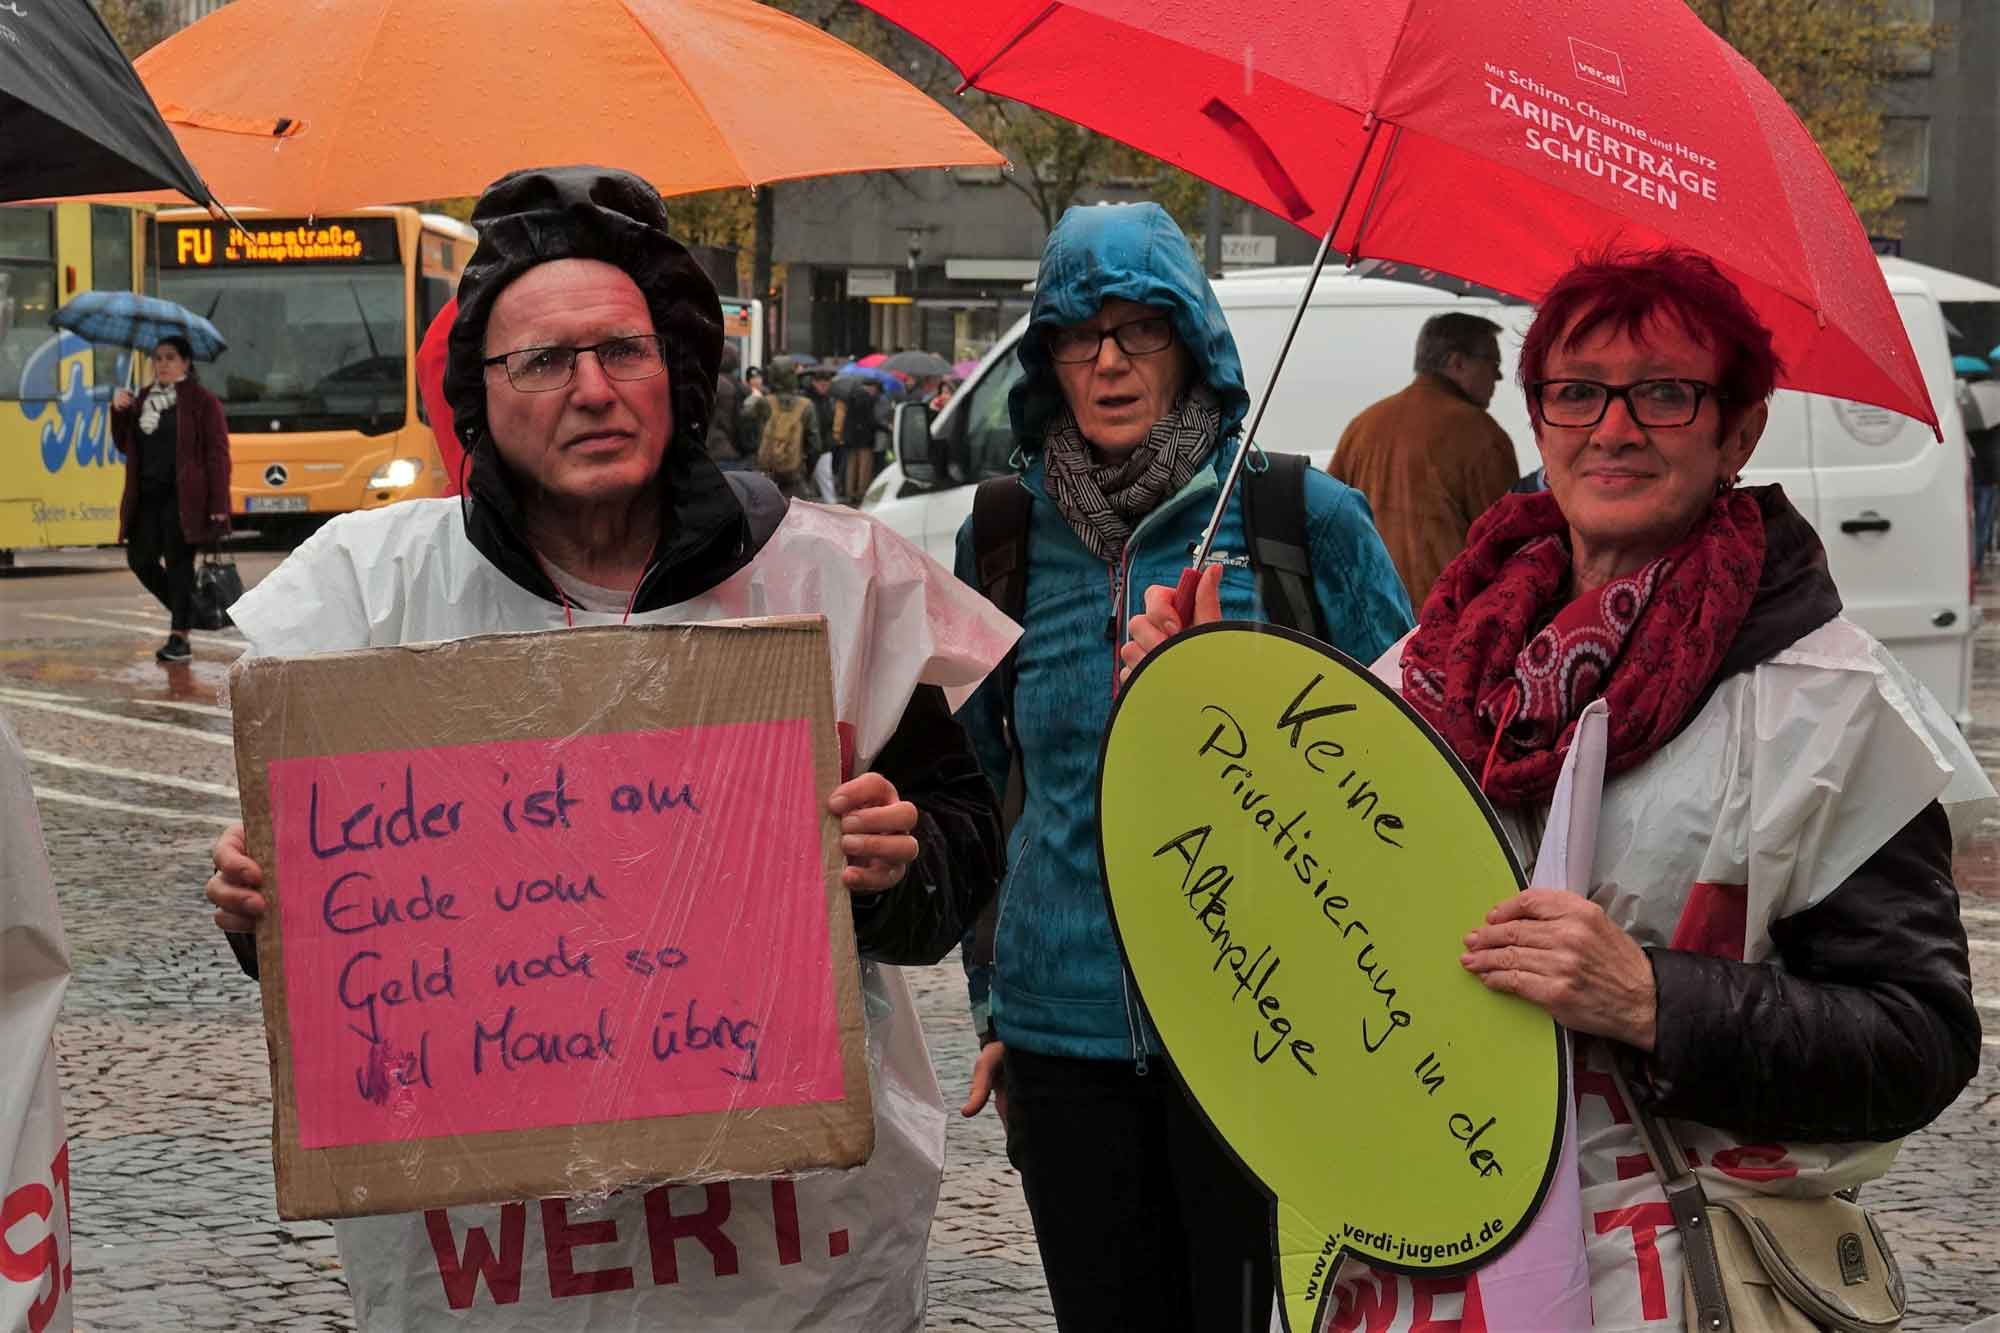 FU
Haasstraße
u. Hauptbahnhof
ver.di
Mit Schirm, Charme und Herz
TARIFVERTRÄGE
SCHÜTZEN
Spielen +
Leider ist am
Ende vom
Geld noch so
viel Monat übrig
WERT.
Keine
Privatisierung in der
Altenpflege
www.verdi-jugend.de